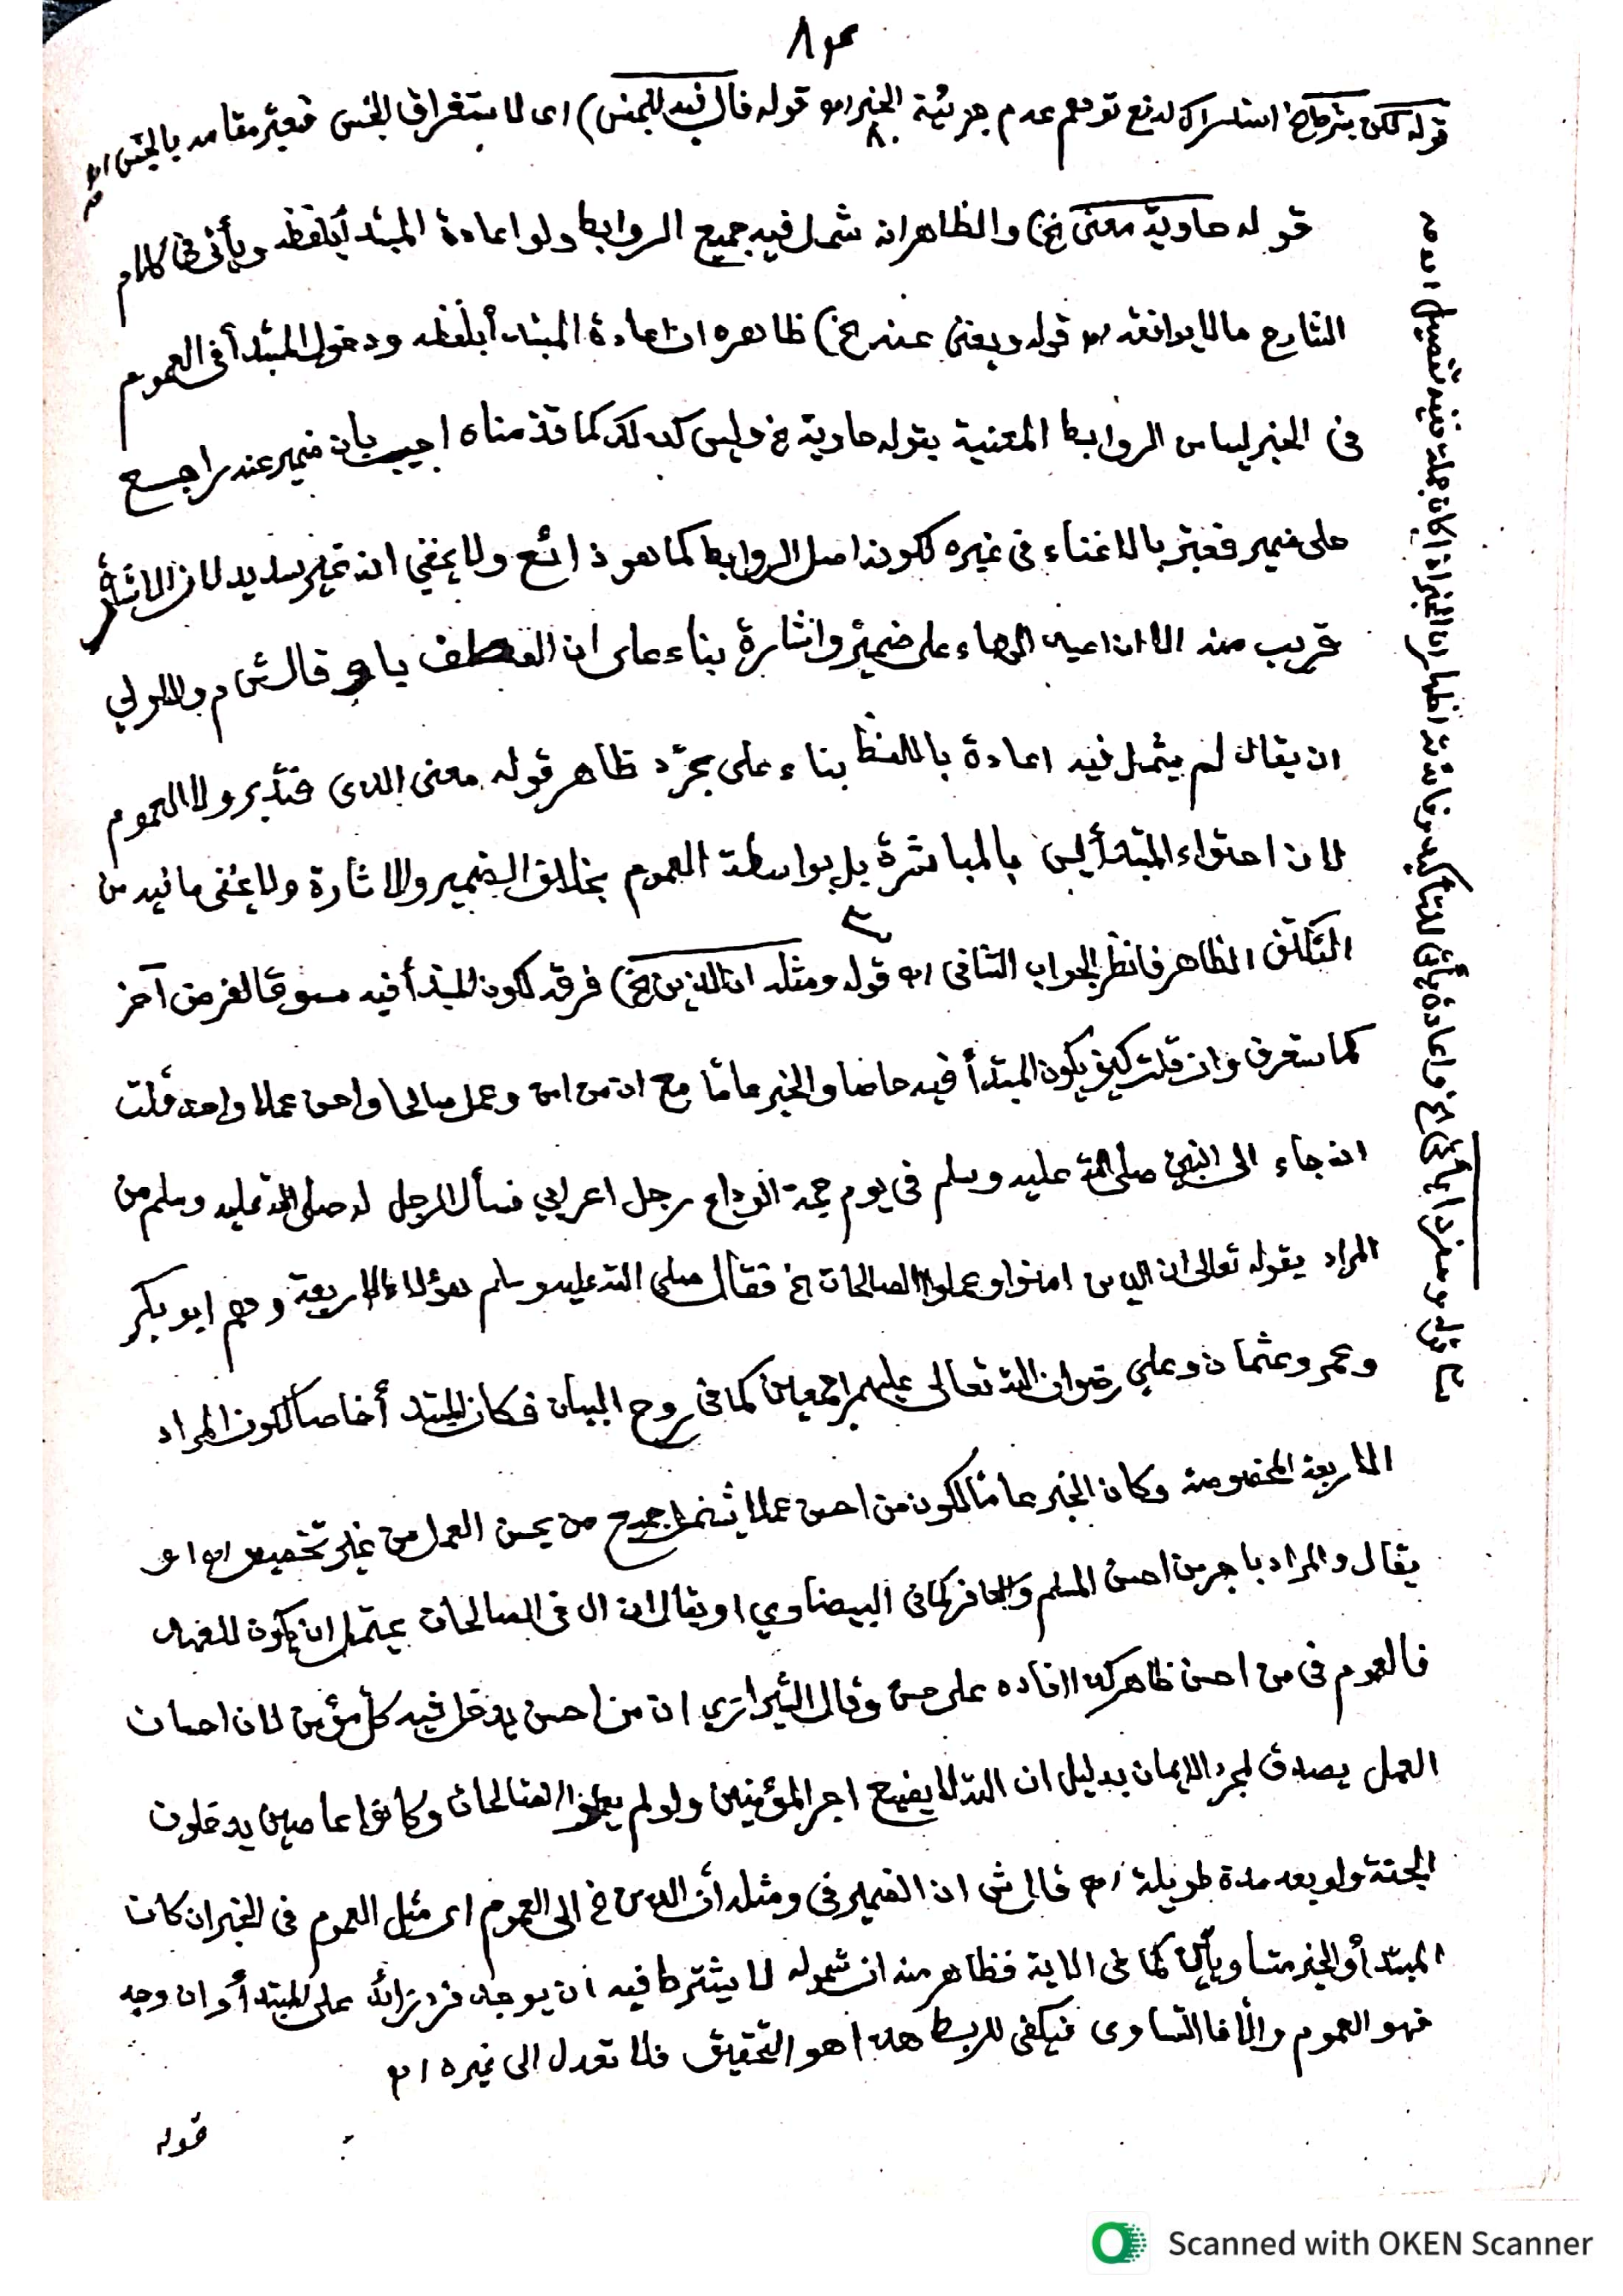 ٨٣
قوله لكن بشرط الخ) استدراك لدفع توهم عدم جزئية الخبر اهـ قوله فال فيه للجنس) اى لاستغراق الجنس بالجنس اهـ
قوله حاوية معنى الخ) والظاهر انه شمل فيه جميع الروابط ولو اعادة المبتدأ بلفظه ويأتى فى كلام
الشارح ما لا يوافقه اهـ قوله ويغنى عنه الخ) ظاهره ان اعادة المبتدأ بلفظه ودخول المبتدأ فى العموم
فى الخبر ليسا من الروابط المعنية بقوله حاوية الخ وليس كذلك كما قدمناه اجيب بان ضمير عنه راجع
على ضمير فعبر بالاغناء فى غيره لكونه اصل الروابط كما هو ذائع ولا يخفي انه غير سديد لان الاشارة
قريب منه الا ان على ضمير واشارة بناء على ان العطف باو قال ش م والاولي
ان يقال لم يشمل فيه اعادة باللفظ بناء على مجرّد ظاهر قوله معنى الذى فتدبر ولا العموم
لان احتواء المبتدأ ليس بالمباشرة بل بواسطة العموم بخلاف الضمير والاشارة ولا يخفى ما فيه من
التكلف الظاهر فانظر الجواب الثانى اهـ قوله ومثله ان الذين الخ) فرقه لكون المبتدأ فيه مسوقا لغرض آخر
كما ستعرف وان قلت كيف يكون المبتدأ فيه خاصا والخبر عامّا مع ان من امن وعمل صالحا واحسن عملا واحد قلت
انه جاء الى النبي صلى الله عليه وسلم فى يوم حجة الوداع رجل اعرابي فسأل الرجل له صلى الله عليه وسلم من
المراد بقوله تعالى ان الذين امنوا وعملوا الصالحات الخ فقال صلى الله عليه وسلم هؤلاء الاربعة وهم ابو بكر
وعمر وعثمان وعلي رضوان الله تعالى عليهم اجمعين كما فى روح البيان فكان المبتدأ خاصا لكون المراد
الاربعة المخصوصة وكان الخبر عامّا لكون من احسن عملا يشمل جميع من يحسن العمل من غير تخصيص اهـ او
يقال والمراد باجر من احسن المسلم والكافر كما فى البيضاوي او يقال ان ال فى الصالحات يحتمل ان يكون للعهد
فالعموم فى من احسن ظاهر كذا افاده على حسن وقال الشيرازي ان من احسن يدخل فيه كل مؤمن لان احسان
العمل يصدق لمجرد الايمان بدليل ان الله لا يضيع اجر المؤمنين ولو لم يعملوا الصالحات وكانوا عاصين يدخلون
الجنة ولو بعد مدة طويلة اهـ قال ش ان الضمير فى ومثله أن الذين الخ الى العموم اى مثل العموم فى الخبر ان كان
المبتدأ والخبر متساويين كما فى الاية فظاهر منه ان شموله لا يشترط فيه ان يوجد فرد زائد على المبتدأ وان وجد
فهو العموم والّا فالتساوى فيكفى للربط هذا هو التحقيق فلا تعدل الى غيره اهـ
قوله
قوله ومفردا يأتى الخ) واعادة يأتى للتأكيد
Scanned with OKEN Scanner